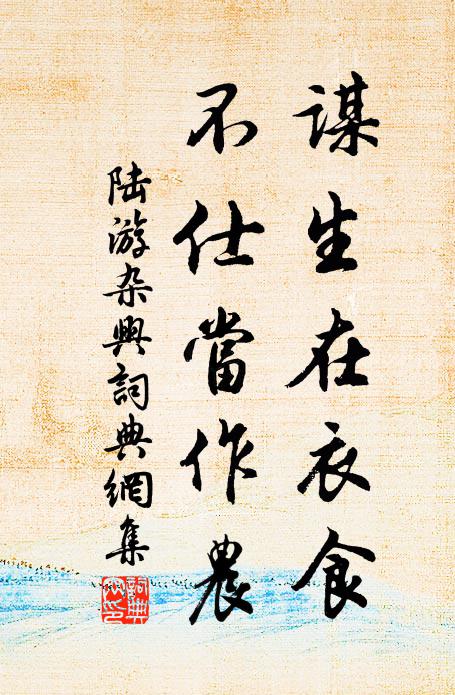 謀生在衣食
不仕當作農
陸游杂興詞典網集